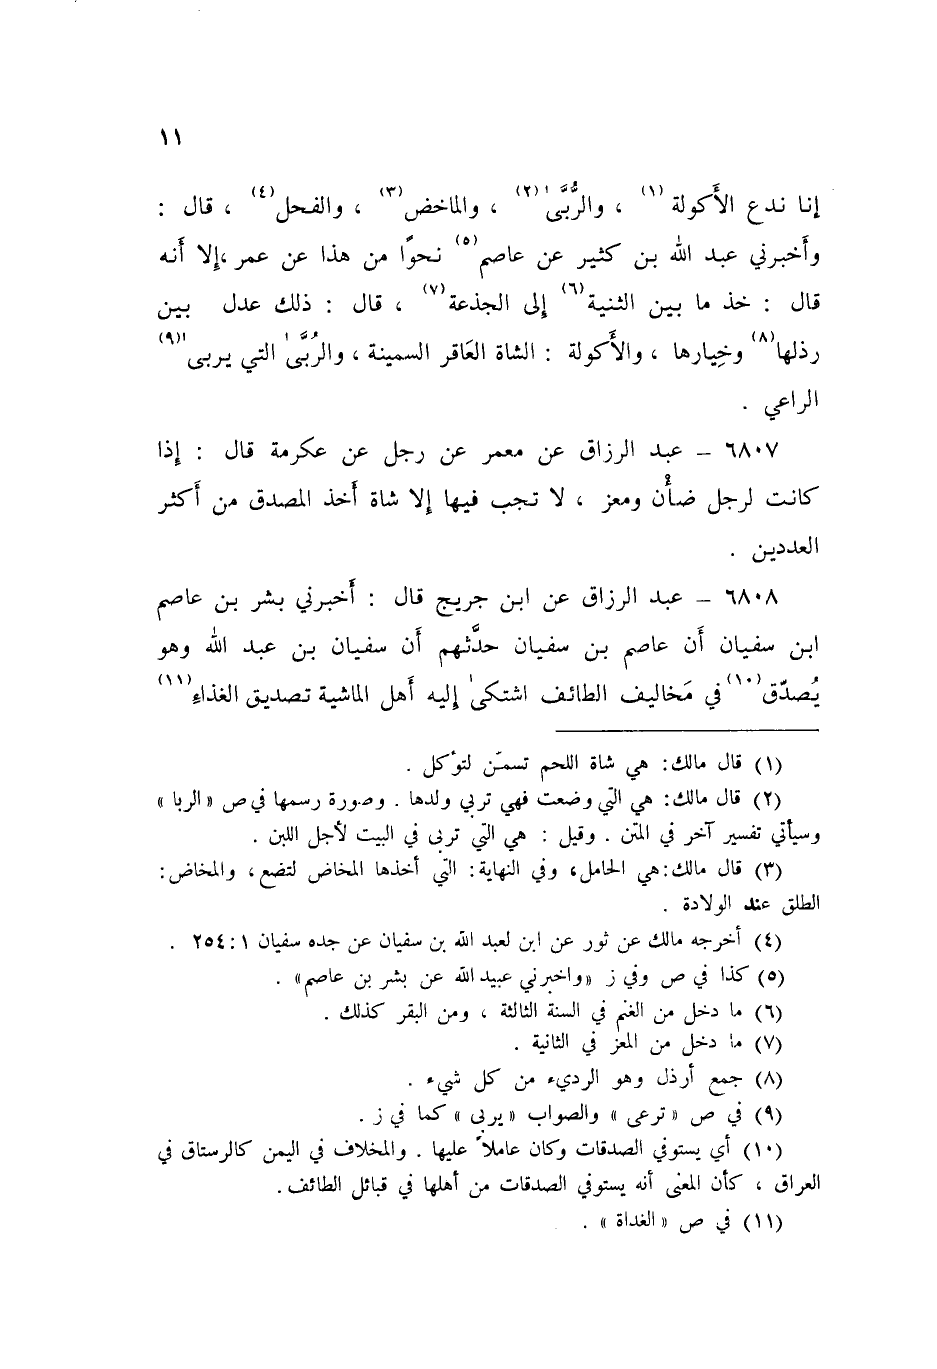 ١١
إنا ندع الأَكولة(١) ، والرُّبَّىٰ(٢) ، والماخض(٣) ، والفحل(٤) ، قال :
وأَخبرني عبد الله بن كثير عن عاصم(٥) نحوًا من هذا عن عمر ،إلا أَنه
قال : خذ ما بين الثنية(٦) إلى الجذعة(٧) ، قال : ذلك عدل بين
رذلها(٨) وخِيارها ، والأَكولة : الشاة العَاقر السمينة ، والرُبَّىٰ التي يربى(٩)
الراعي .
٦٨٠٧ – عبد الرزاق عن معمر عن رجل عن عكرمة قال : إذا
كانت لرجل ضأْن ومعز ، لا تجب فيها إلا شاة أَخذ المصدق من أَكثر
العددين .
٦٨٠٨ – عبد الرزاق عن ابن جريج قال : أَخبرني بشر بن عاصم
ابن سفيان أَن عاصم بن سفيان حدَّثهم أَن سفيان بن عبد الله وهو
يُصدّق(١٠) في مَخاليف الطائف اشتكىٰ إليه أَهل الماشية تصديق الغذاءِ(١١)
(١) قال مالك: هي شاة اللحم تسمّن لتؤكل .
(٢) قال مالك: هي التي وضعت فهي تربي ولدها . وصورة رسمها في ص « الربا »
وسيأتي تفسير آخر في المتن . وقيل : هي التي تربى في البيت لأجل اللبن .
(٣) قال مالك:هي الحامل، وفي النهاية: التي أخذها المخاض لتضع، والمخاض:
الطلق عند الولادة .
(٤) أخرجه مالك عن ثور عن ابن لعبد الله بن سفيان عن جده سفيان ١ : ٢٥٤ .
(٥) كذا في ص وفي ز «واخبرني عبيد الله عن بشر بن عاصم» .
(٦) ما دخل من الغنم في السنة الثالثة ، ومن البقر كذلك .
(٧) ما دخل من المعز في الثانية .
(٨) جمع أرذل وهو الرديء من كل شيء .
(٩) في ص « ترعى » والصواب « يربى » كما في ز .
(١٠) أي يستوفي الصدقات وكان عاملاً عليها . والمخلاف في اليمن كالرستاق في
العراق ، كأن المعنى أنه يستوفي الصدقات من أهلها في قبائل الطائف .
(١١) في ص « الغداة » .